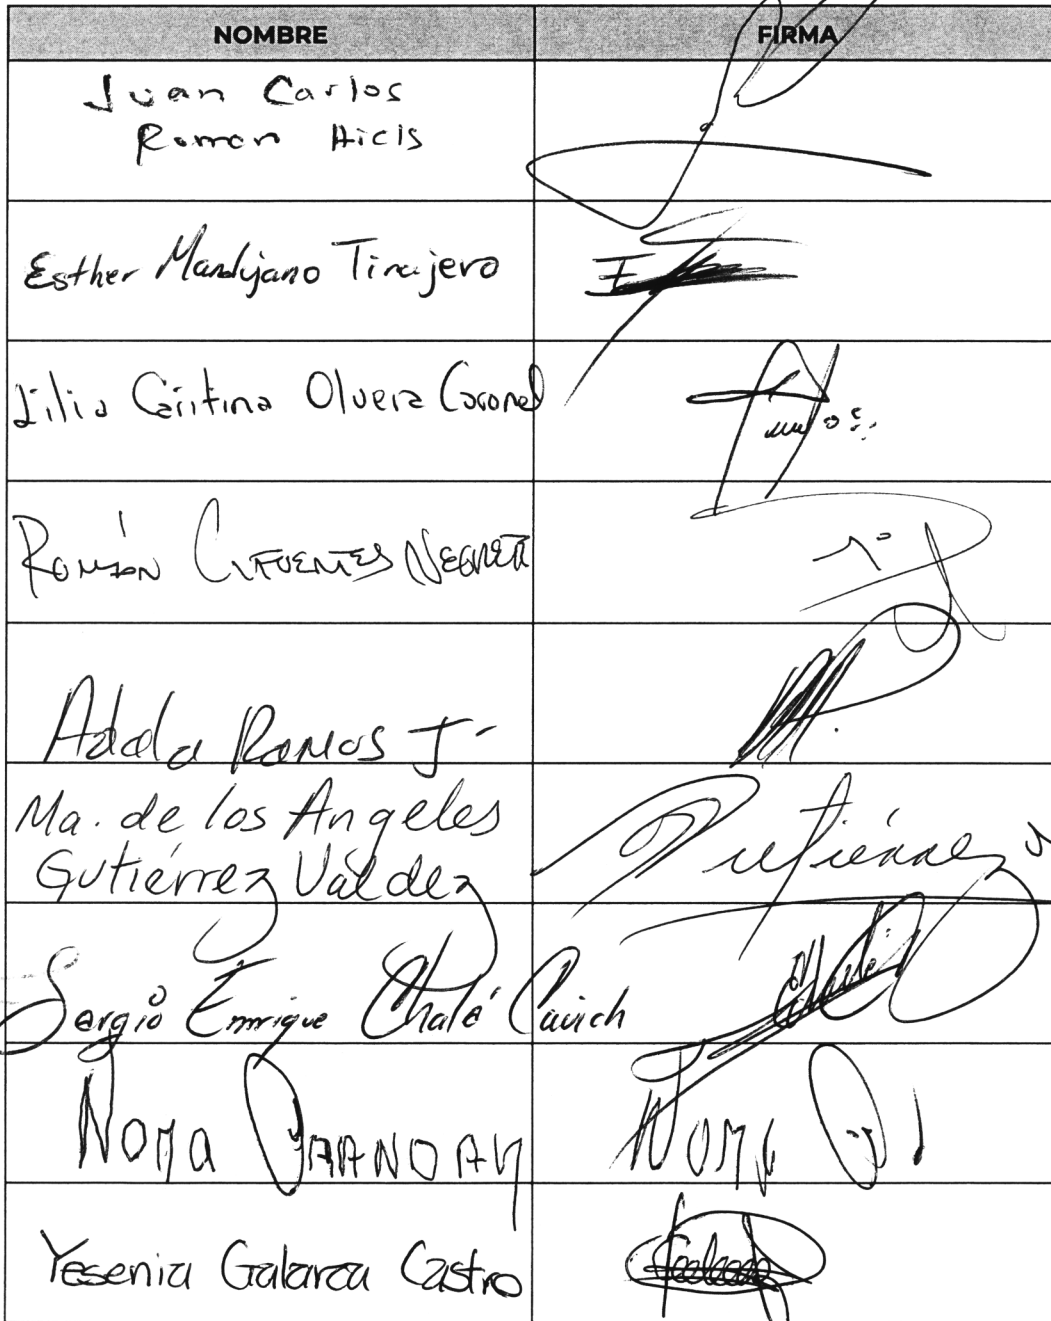 NOMBRE FIRMA
Juan Carlos
Roman Hicis
Esther Mandujano Tinajero
Lilia Cristina Olvera Coronel
Román Cifuentes Negrete
Adala Ramos J.
Ma. de los Angeles
Gutiérrez Valdez Gutiérrez
Sergio Enrique Chalé Cauich
Noma
Yesenia Galarza Castro